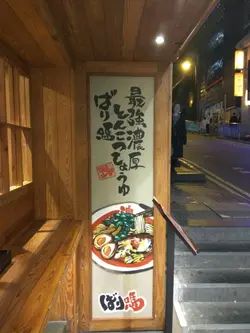 最強濃厚
とんこつしょうゆ
ばり嗎
ばり嗎